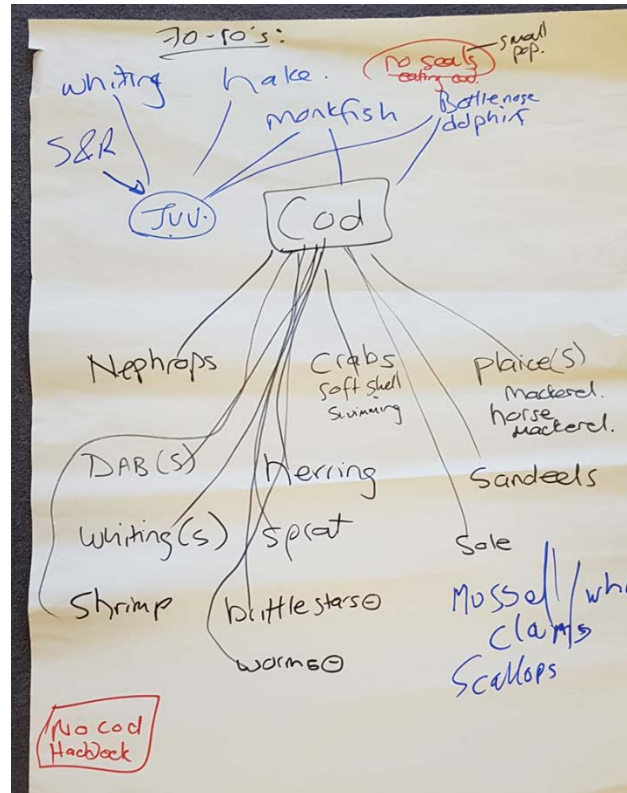 70-80's:
small
pop.
no seals
eating cod.
whiting
hake.
monkfish
Bottlenose
S&R
Juv.
Cod
Nephrops
Crabs
soft shell
Swimming
Plaice(s)
Mackerel.
horse
Mackerel.
DAB(S)
herring
Sandeels
Whiting(s)
sprat
Sole
Shrimp
brittlestars
worms
Mussel/wh
Clams
Scallops
No Cod
Haddock